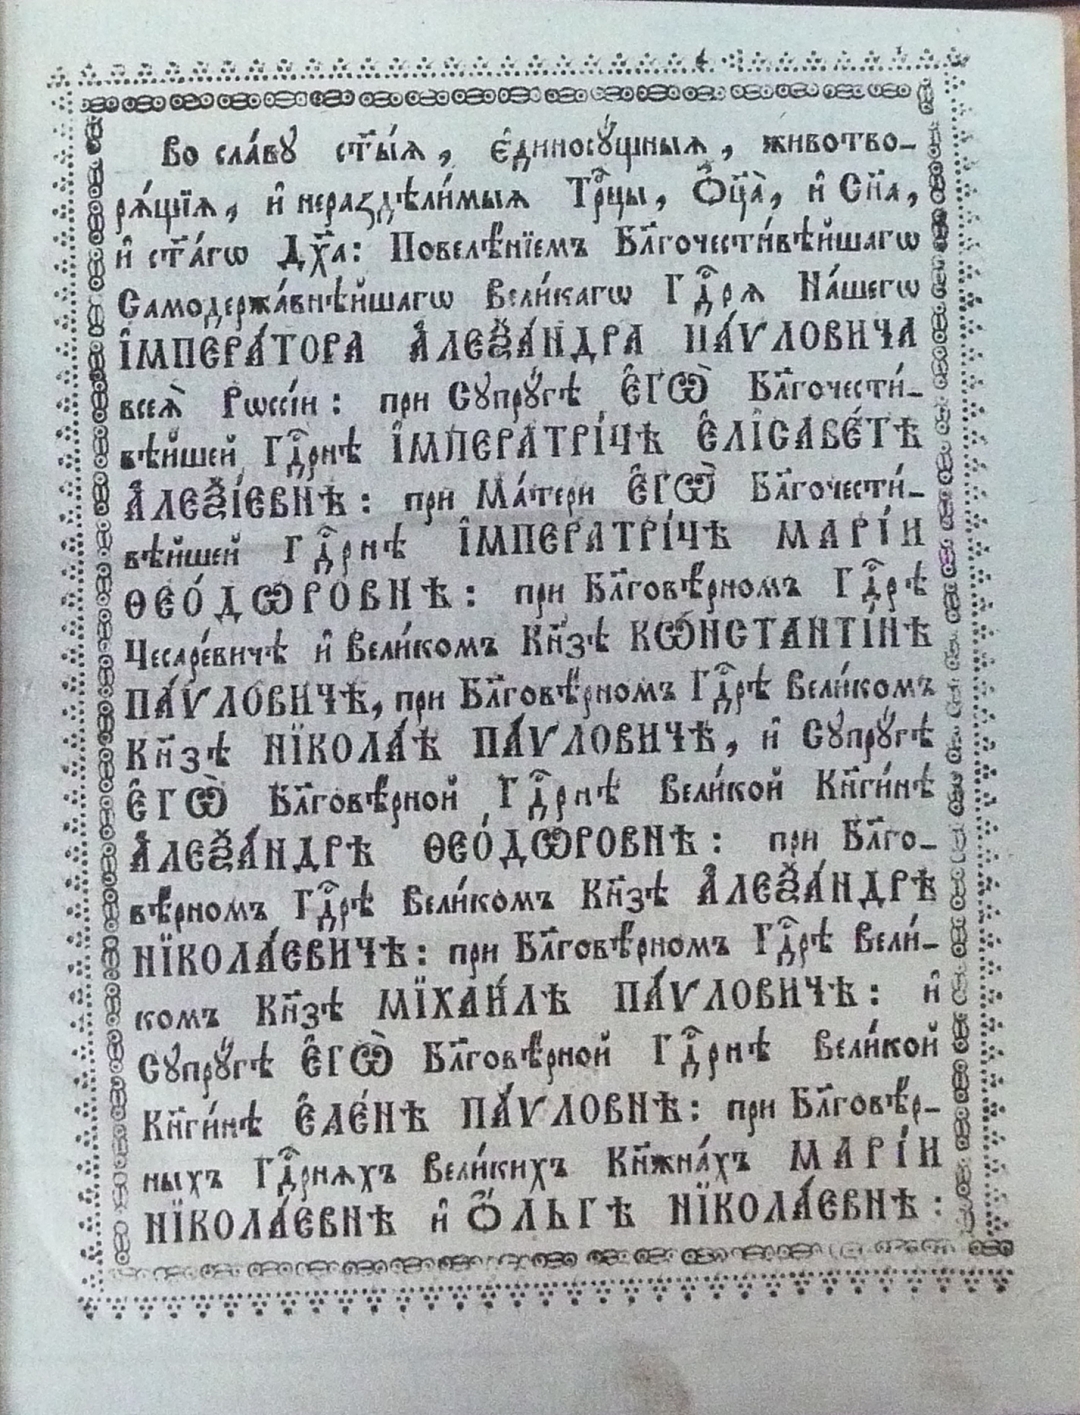 Во сла́вꙋ ст҃ы́ѧ, є҆диносꙋ́щныѧ, животво-
рѧ́щїѧ, и҆ нераздѣли́мыѧ Трⷪ҇цы, Ѻ҆ц҃а̀, и҆ Сн҃а,
и҆ ст҃а́гѡ Дх҃а: Повелѣ́нїемъ Бл҃гочести́вѣйшагѡ
Самодержа́внѣйшагѡ Вели́кагѡ Гдⷭ҇рѧ На́шегѡ
І҆МПЕРА́ТОРА А҆ЛЕѮА́НДРА ПА́ѴЛОВИЧА
всеѧ̀ Рѡссі́и: при Сꙋпрꙋ́гѣ Є҆ГѠ̀ Бл҃гочести́-
вѣйшей Гдⷭ҇рнѣ І҆МПЕРАТРІ́ЦѢ Є҆ЛІСАВЕ́ТѢ
А҆ЛЕѮІ́ЕВНѢ: при Ма́тери Є҆ГѠ̀ Бл҃гочести́-
вѣйшей Гдⷭ҇рнѣ І҆МПЕРАТРІ́ЦѢ МАРІ́И
ѲЕО́ДѠРОВНѢ: при Бл҃говѣ́рномъ Гдⷭ҇рѣ
Цесаре́вичѣ и҆ Вели́комъ Кн҃зѣ КѠНСТАНТІ́НѢ
ПА́ѴЛОВИЧѢ, при Бл҃говѣ́рномъ Гдⷭ҇рѣ Вели́комъ
Кн҃зѣ НЇКОЛА́Ѣ ПА́ѴЛОВИЧѢ, и҆ Сꙋпрꙋ́гѣ
Є҆ГѠ̀ Бл҃говѣ́рной Гдⷭ҇рнѣ Вели́кой Кн҃ги́нѣ
А҆ЛЕѮА́НДРѢ ѲЕО́ДѠРОВНѢ: при Бл҃го-
вѣ́рномъ Гдⷭ҇рѣ Вели́комъ Кн҃зѣ А҆ЛЕѮА́НДРѢ
НЇКОЛА́ЕВИЧѢ: при Бл҃говѣ́рномъ Гдⷭ҇рѣ Вели́-
комъ Кн҃зѣ МЇХАИ́ЛѢ ПА́ѴЛОВИЧѢ: и҆
Сꙋпрꙋ́гѣ Є҆ГѠ̀ Бл҃говѣ́рной Гдⷭ҇рнѣ Вели́кой
Кн҃ги́нѣ Є҆ЛЕ́НѢ ПА́ѴЛОВНѢ: при Бл҃говѣ́р-
ныхъ Гдⷭ҇рнѧхъ Вели́кихъ Кн҃жна́хъ МАРІ́И
НЇКОЛА́ЕВНѢ и҆ Ѻ҆́ЛЬГѢ НЇКОЛА́ЕВНѢ: